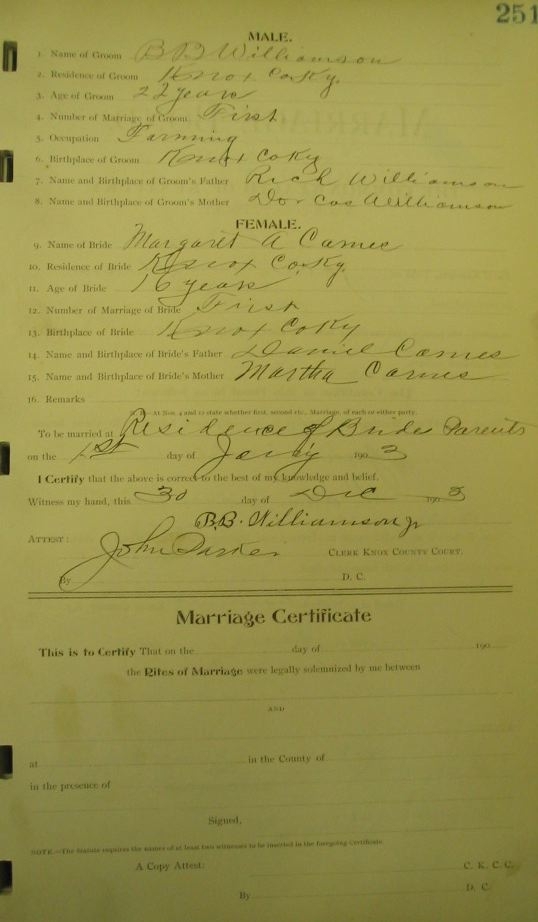 251
MALE.
1. Name of Groom B B Williamson
2. Residence of Groom Knox Co Ky.
3. Age of Groom 22 years
4. Number of Marriage of Groom First
5. Occupation Farming
6. Birthplace of Groom Knox Co Ky
7. Name and Birthplace of Groom's Father Rich Williamson
8. Name and Birthplace of Groom's Mother Dorcas Williamson
FEMALE.
9. Name of Bride Margaret A Carnes
10. Residence of Bride Knox Co. Ky.
11. Age of Bride 16 years
12. Number of Marriage of Bride First
13. Birthplace of Bride Knox Co Ky
14. Name and Birthplace of Bride's Father Daniel Carnes
15. Name and Birthplace of Bride's Mother Martha Carnes
16. Remarks
At Nos. 4 and 12 state whether first, second etc., Marriage, of each or either party.
To be married at Residence of Brides Parents
on the 1st day of Jany 190 3
I Certify that the above is correct to the best of my knowledge and belief.
Witness my hand, this 30 day of Dec 190 3
B.B. Williamson Jr
ATTEST:
John Parker CLERK KNOX COUNTY COURT.
By D. C.
Marriage Certificate
This is to Certify That on the day of 190
the Rites of Marriage were legally solemnized by me between
AND
at in the County of
in the presence of
Signed,
NOTE.—The Statute requires the names of at least two witnesses to be inserted in the foregoing Certificate.
A Copy Attest: C. K. C. C.
By D. C.